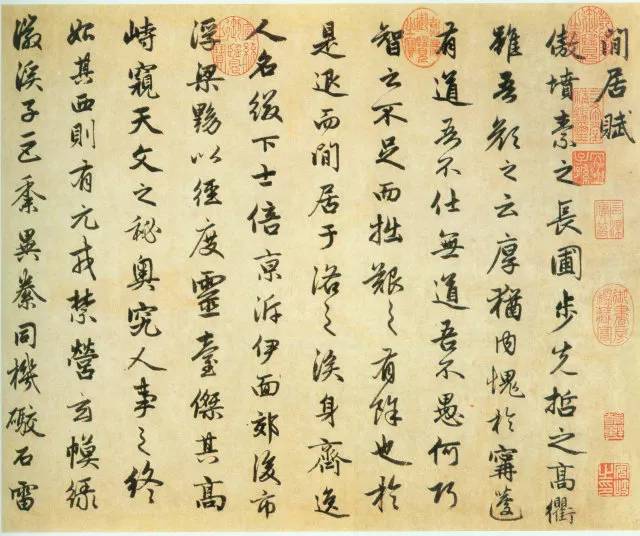 閒居賦
傲墳素之長圃步先哲之高衢
雖吾顏之云厚猶内愧於甯蘧
有道吾不仕無道吾不愚何巧
智之不足而拙艱之有餘也於
是退而閒居于洛之涘身齊逸
人名綴下士倍京泝伊面郊後市
浮梁黝以徑度靈臺傑其高
峙窺天文之秘奥究人事之終
始其西則有元戎禁營玄幙綠
徽溪子巨黍異絭同機礮石雷